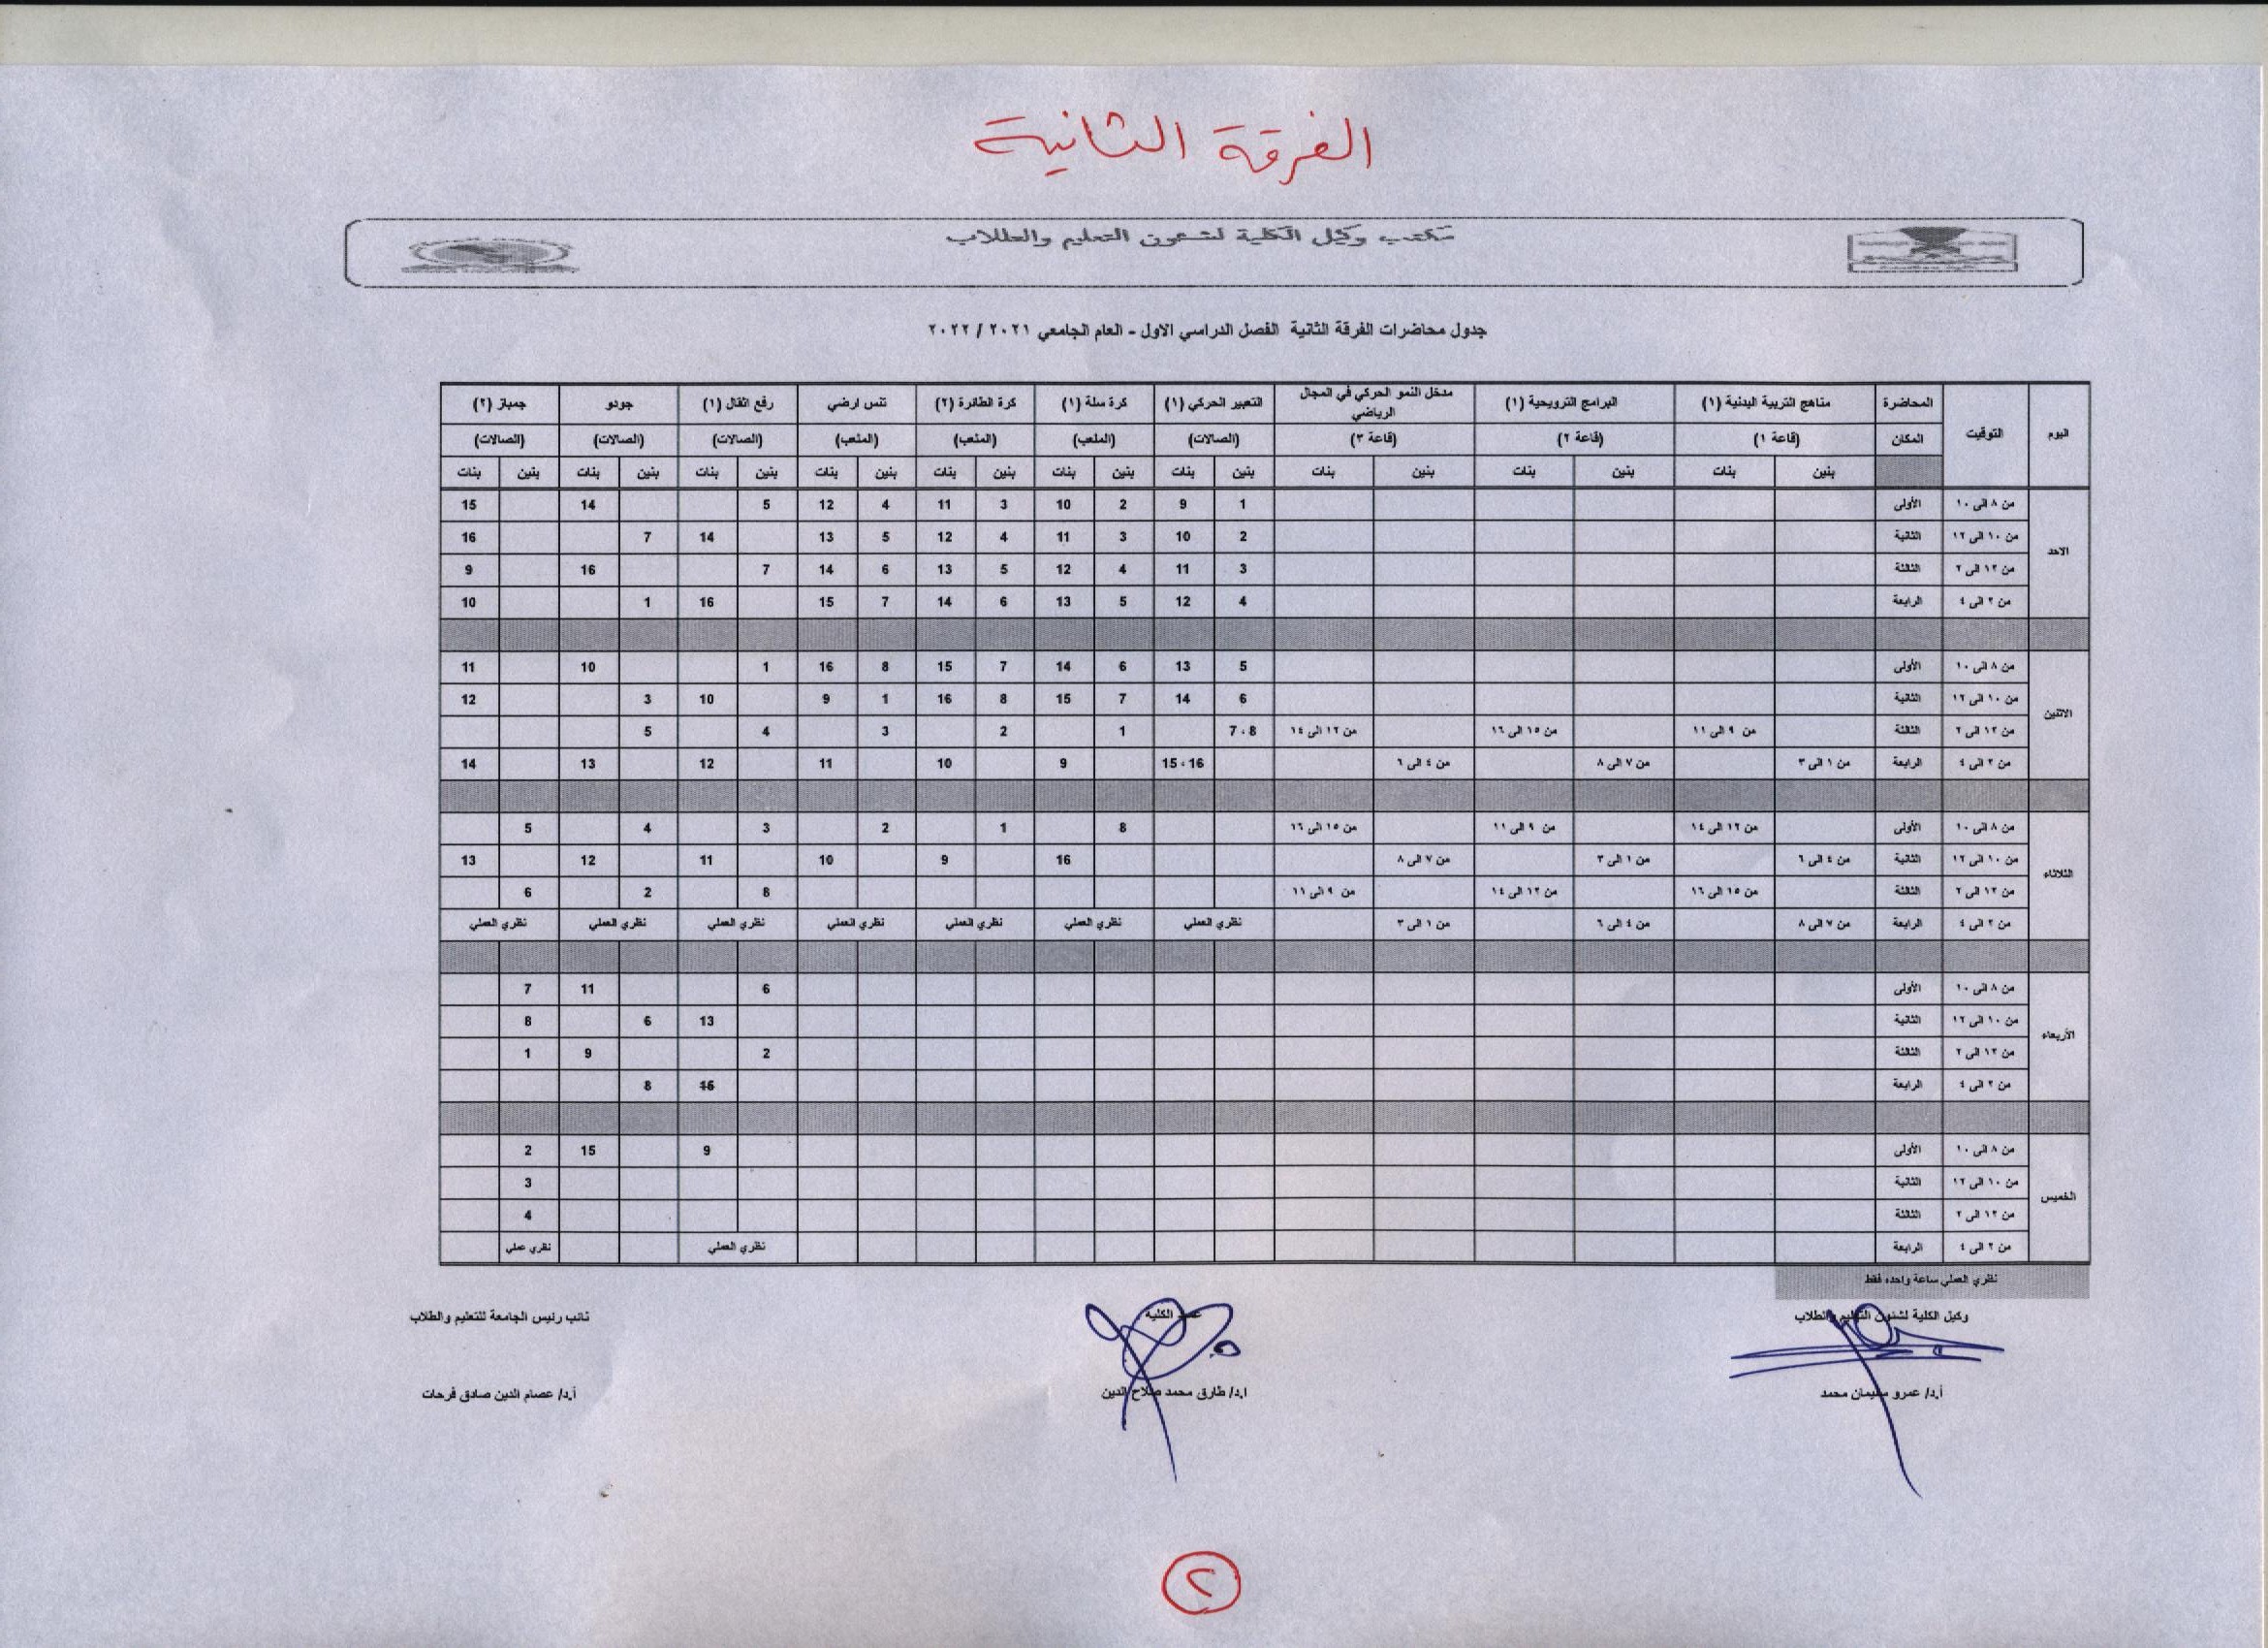 الفرقة الثانية
مكتب وكيل الكلية لشئون التعليم والطلاب
جدول محاضرات الفرقة الثانية الفصل الدراسي الاول - العام الجامعي ٢٠٢١ / ٢٠٢٢
اليوم التوقيت المحاضرة مناهج التربية البدنية (١) البرامج الترويحية (١) مدخل النمو الحركي في المجال الرياضي التعبير الحركي (١) كرة سلة (١) كرة الطائرة (٢) تنس ارضي رفع اثقال (١) جودو جمباز (٢)
المكان (قاعة ١) (قاعة ٢) (قاعة ٣) (الصالات) (الملعب) (الملعب) (الملعب) (الصالات) (الصالات) (الصالات)
بنين بنات بنين بنات بنين بنات بنين بنات بنين بنات بنين بنات بنين بنات بنين بنات بنين بنات بنين بنات
الاحد
من ٨ الى ١٠ الأولى 1 9 2 10 3 11 4 12 5 14 15
من ١٠ الى ١٢ الثانية 2 10 3 11 4 12 5 13 14 7 16
من ١٢ الى ٢ الثالثة 3 11 4 12 5 13 6 14 7 16 9
من ٢ الى ٤ الرابعة 4 12 5 13 6 14 7 15 16 1 10
الاثنين
من ٨ الى ١٠ الأولى 5 13 6 14 7 15 8 16 1 10 11
من ١٠ الى ١٢ الثانية 6 14 7 15 8 16 1 9 10 3 12
من ١٢ الى ٢ الثالثة من ٩ الى ١١ من ١٥ الى ١٦ من ١٢ الى ١٤ 7،8 1 2 3 4 5
من ٢ الى ٤ الرابعة من ١ الى ٣ من ٧ الى ٨ من ٤ الى ٦ 15،16 9 10 11 12 13 14
الثلاثاء
من ٨ الى ١٠ الأولى من ١٢ الى ١٤ من ٩ الى ١١ من ١٥ الى ١٦ 8 1 2 3 4 5
من ١٠ الى ١٢ الثانية من ٤ الى ٦ من ١ الى ٣ من ٧ الى ٨ 16 9 10 11 12 13
من ١٢ الى ٢ الثالثة من ١٥ الى ١٦ من ١٢ الى ١٤ من ٩ الى ١١ 8 2 6
من ٢ الى ٤ الرابعة من ٧ الى ٨ من ٤ الى ٦ من ١ الى ٣ نظري العملي نظري العملي نظري العملي نظري العملي نظري العملي نظري العملي نظري العملي
الأربعاء
من ٨ الى ١٠ الأولى 6 11 7
من ١٠ الى ١٢ الثانية 13 6 8
من ١٢ الى ٢ الثالثة 2 9 1
من ٢ الى ٤ الرابعة 15 8
الخميس
من ٨ الى ١٠ الأولى 9 15 2
من ١٠ الى ١٢ الثانية 3
من ١٢ الى ٢ الثالثة 4
من ٢ الى ٤ الرابعة نظري العملي نظري عملي
نظري العملي ساعة واحده فقط
وكيل الكلية لشئون التعليم والطلاب عميد الكلية نائب رئيس الجامعة للتعليم والطلاب
أ.د/ عمرو سليمان محمد ا.د/ طارق محمد صلاح الدين أ.د/ عصام الدين صادق فرحات
٢